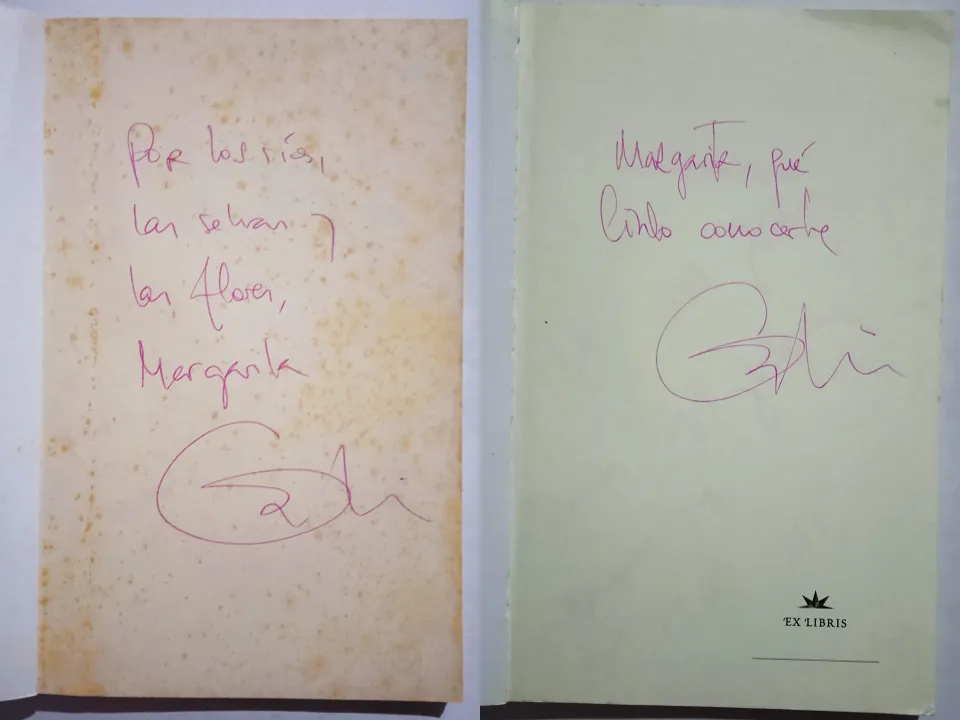 Por los ríos,
las selvas y
las flores,
Margarita
Margarita, qué
lindo conocerte
EX LIBRIS